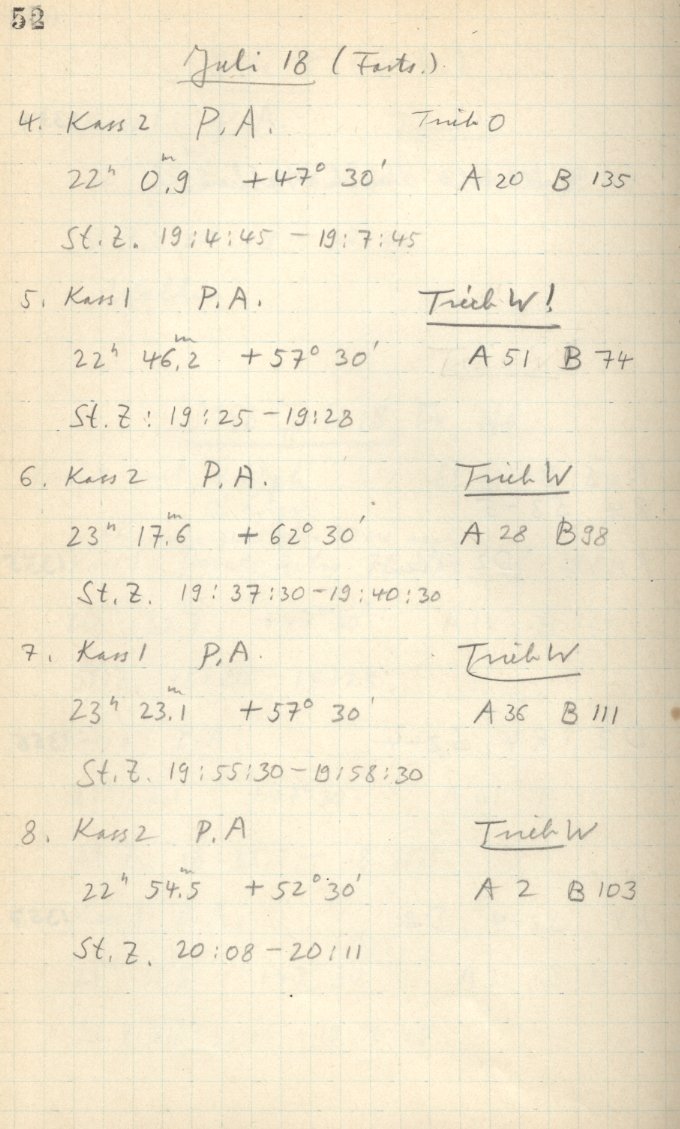 52
Juli 18 (Forts.)
4. Kass 2 P.A. Trieb O
22ʰ 0ᵐ.9 +47° 30' A 20 B 135
St.Z. 19:4:45 – 19:7:45
5. Kass 1 P.A. Trieb W!
22ʰ 46ᵐ.2 +57° 30' A 51 B 74
St.Z: 19:25 – 19:28
6. Kass 2 P.A. Trieb W
23ʰ 17ᵐ.6 +62° 30' A 28 B 98
St.Z. 19:37:30 – 19:40:30
7. Kass 1 P.A. Trieb W
23ʰ 23ᵐ.1 +57° 30' A 36 B 111
St.Z. 19:55:30 – 19:58:30
8. Kass 2 P.A Trieb W
22ʰ 54ᵐ.5 +52° 30' A 2 B 103
St.Z. 20:08 – 20:11